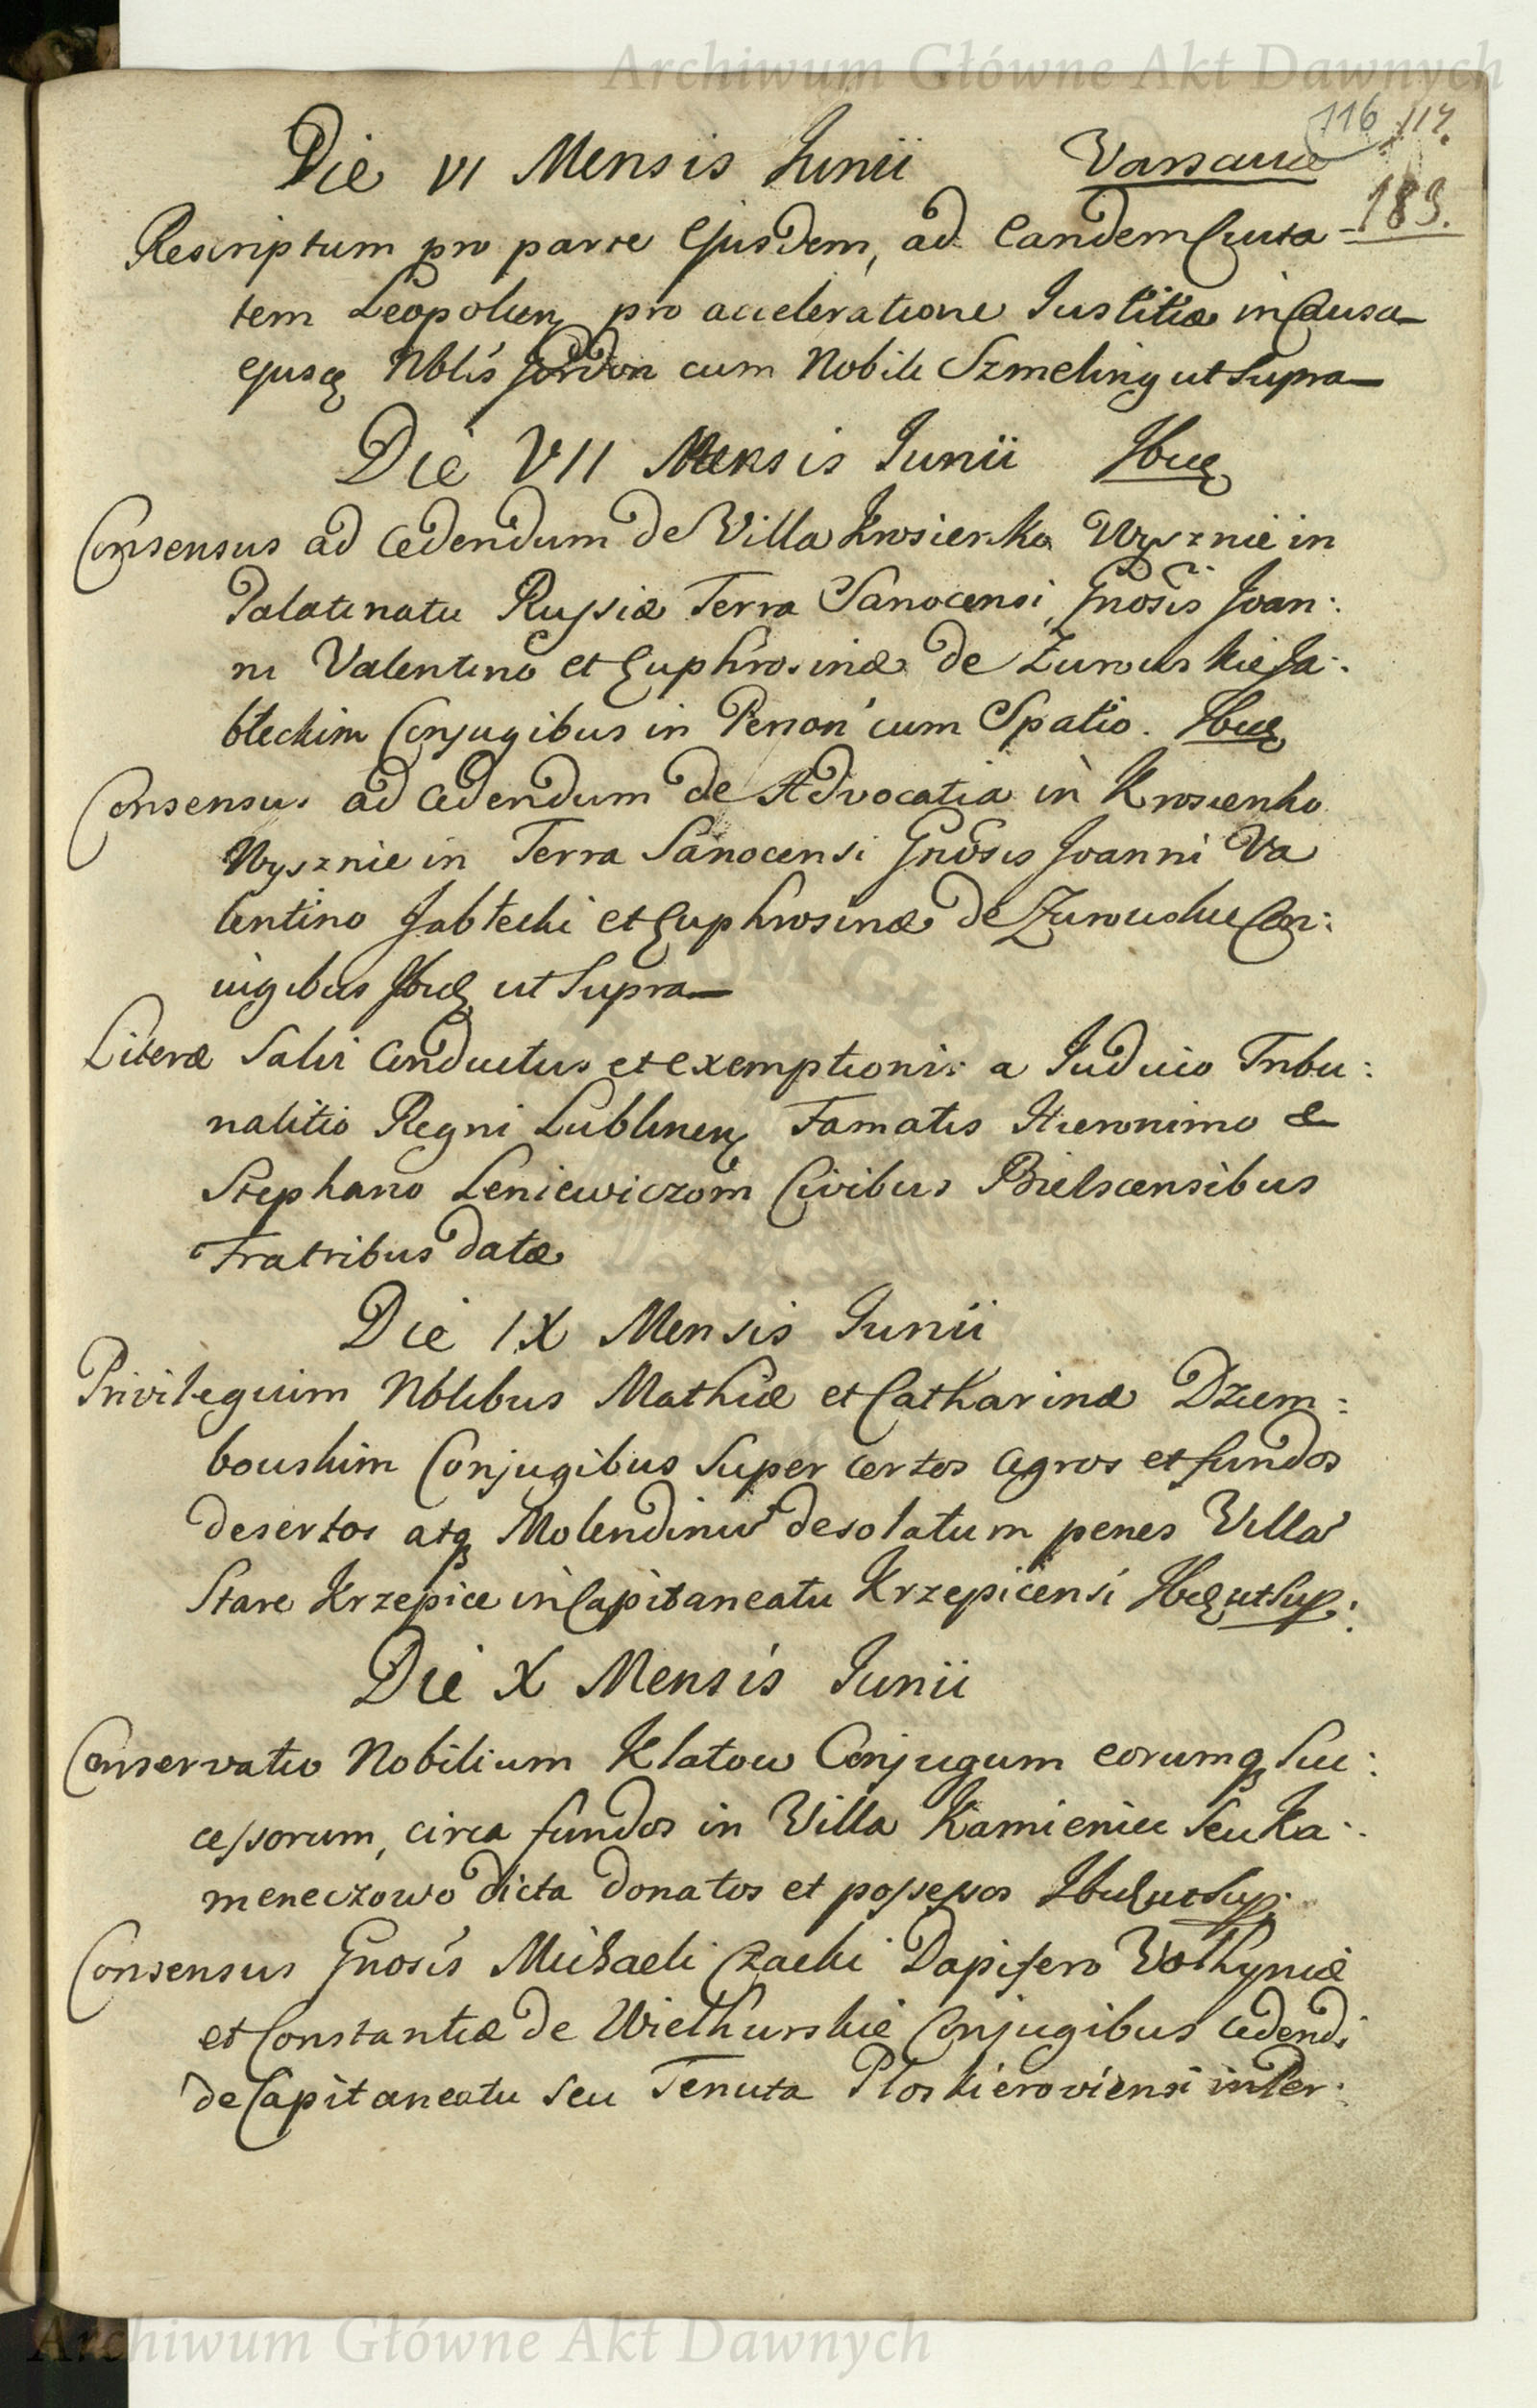 Archiwum Główne Akt Dawnych
116 117.
Die VI Mensis Junii Varsaviæ
183.
Rescriptum pro parte Ejusdem, ad Eandem Civita-
tem Leopolien pro acceleratione Justitiæ in Causa
ejusq Nblis Jordon cum Nobile Szmeling ut Supra
Die VII Mensis Junii Ibid
Consensus ad Cedendum de Villa Krosienko Wysznie in
Palatinatu Russiæ Terra Sanocensi, Gnosis Joan:
ni Valentino et Euphrosinæ de Zurowskie Ja:
błeckim Conjugibus in Person cum Spatio. Ibid
Consensus ad Cedendum de Advocatia in Kroscienko
Wysznie in Terra Sanocensi Gnosis Joanni Va
lentino Jabłecki et Euphrosinæ de Zurowskie Con:
iugibus Ibid ut Supra
Literæ Salvi Conductus et exemptionis a Judicio Tribu:
nalitio Regni Lublinen Famatis Hieronimo &
Stephano Leniewiczom Civibus Bielscensibus
Fratribus datæ
Die IX Mensis Junii
Privilegium Nblibus Mathiæ et Catharinæ Dziem:
bowskim Conjugibus Super certos Agros et fundos
desertos atq Molendinu desolatum penes Villa
Stare Krzepice in Capitaneatu Krzepicensi Ibid ut Sup:
Die X Mensis Junii
Conservatio Nobilium Klatow Conjugum eorumq Suc:
cessorum, circa fundos in Villa Kamieniec Seu Ka:
meneczowo dicta donatos et possessos Ibid ut Sup:
Consensus Gnosis Michaeli Czacki Dapifero Wołhyniæ
et Constantiæ de Wielhurskie Conjugibus Cedendi
de Capitaneatu Seu Tenuta Ploskieroviensi in Per:
Archiwum Główne Akt Dawnych